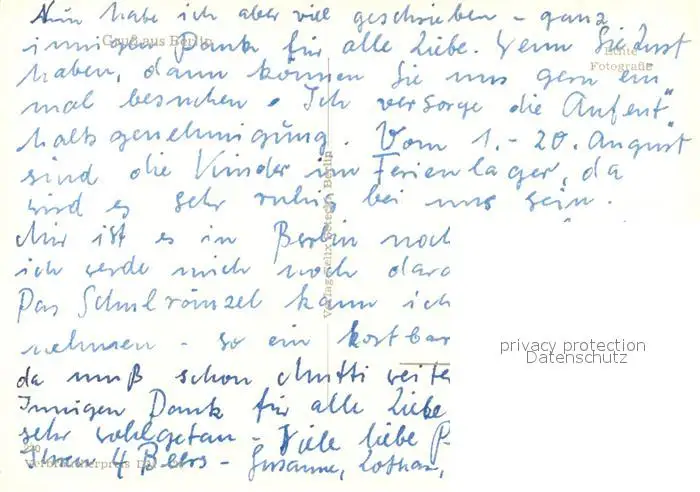 Nun habe ich aber viel geschrieben – ganz
innigen Dank für alle Liebe. Wenn Sie Lust
haben, dann können Sie uns gern ein
mal besuchen. Ich versorge die Aufent"
haltsgenehmigung. Vom 1.- 20. August
sind die Kinder im Ferienlager, da
wird es sehr ruhig bei uns sein.
Mir ist es in Berlin noch
ich werde mich noch dara
Das Schulränzel kann ich
nehmen - so ein kostbar
da muß schon Mutti weite
Innigen Dank für alle Liebe
sehr wohlgetan - Viele liebe
Ihren 4 Beers - Susanne, Lothar,
Gruß aus Berlin
Echte
Fotografie
Verlag Felix Setecki Berlin
Verbraucherpreis
privacy protection
Datenschutz